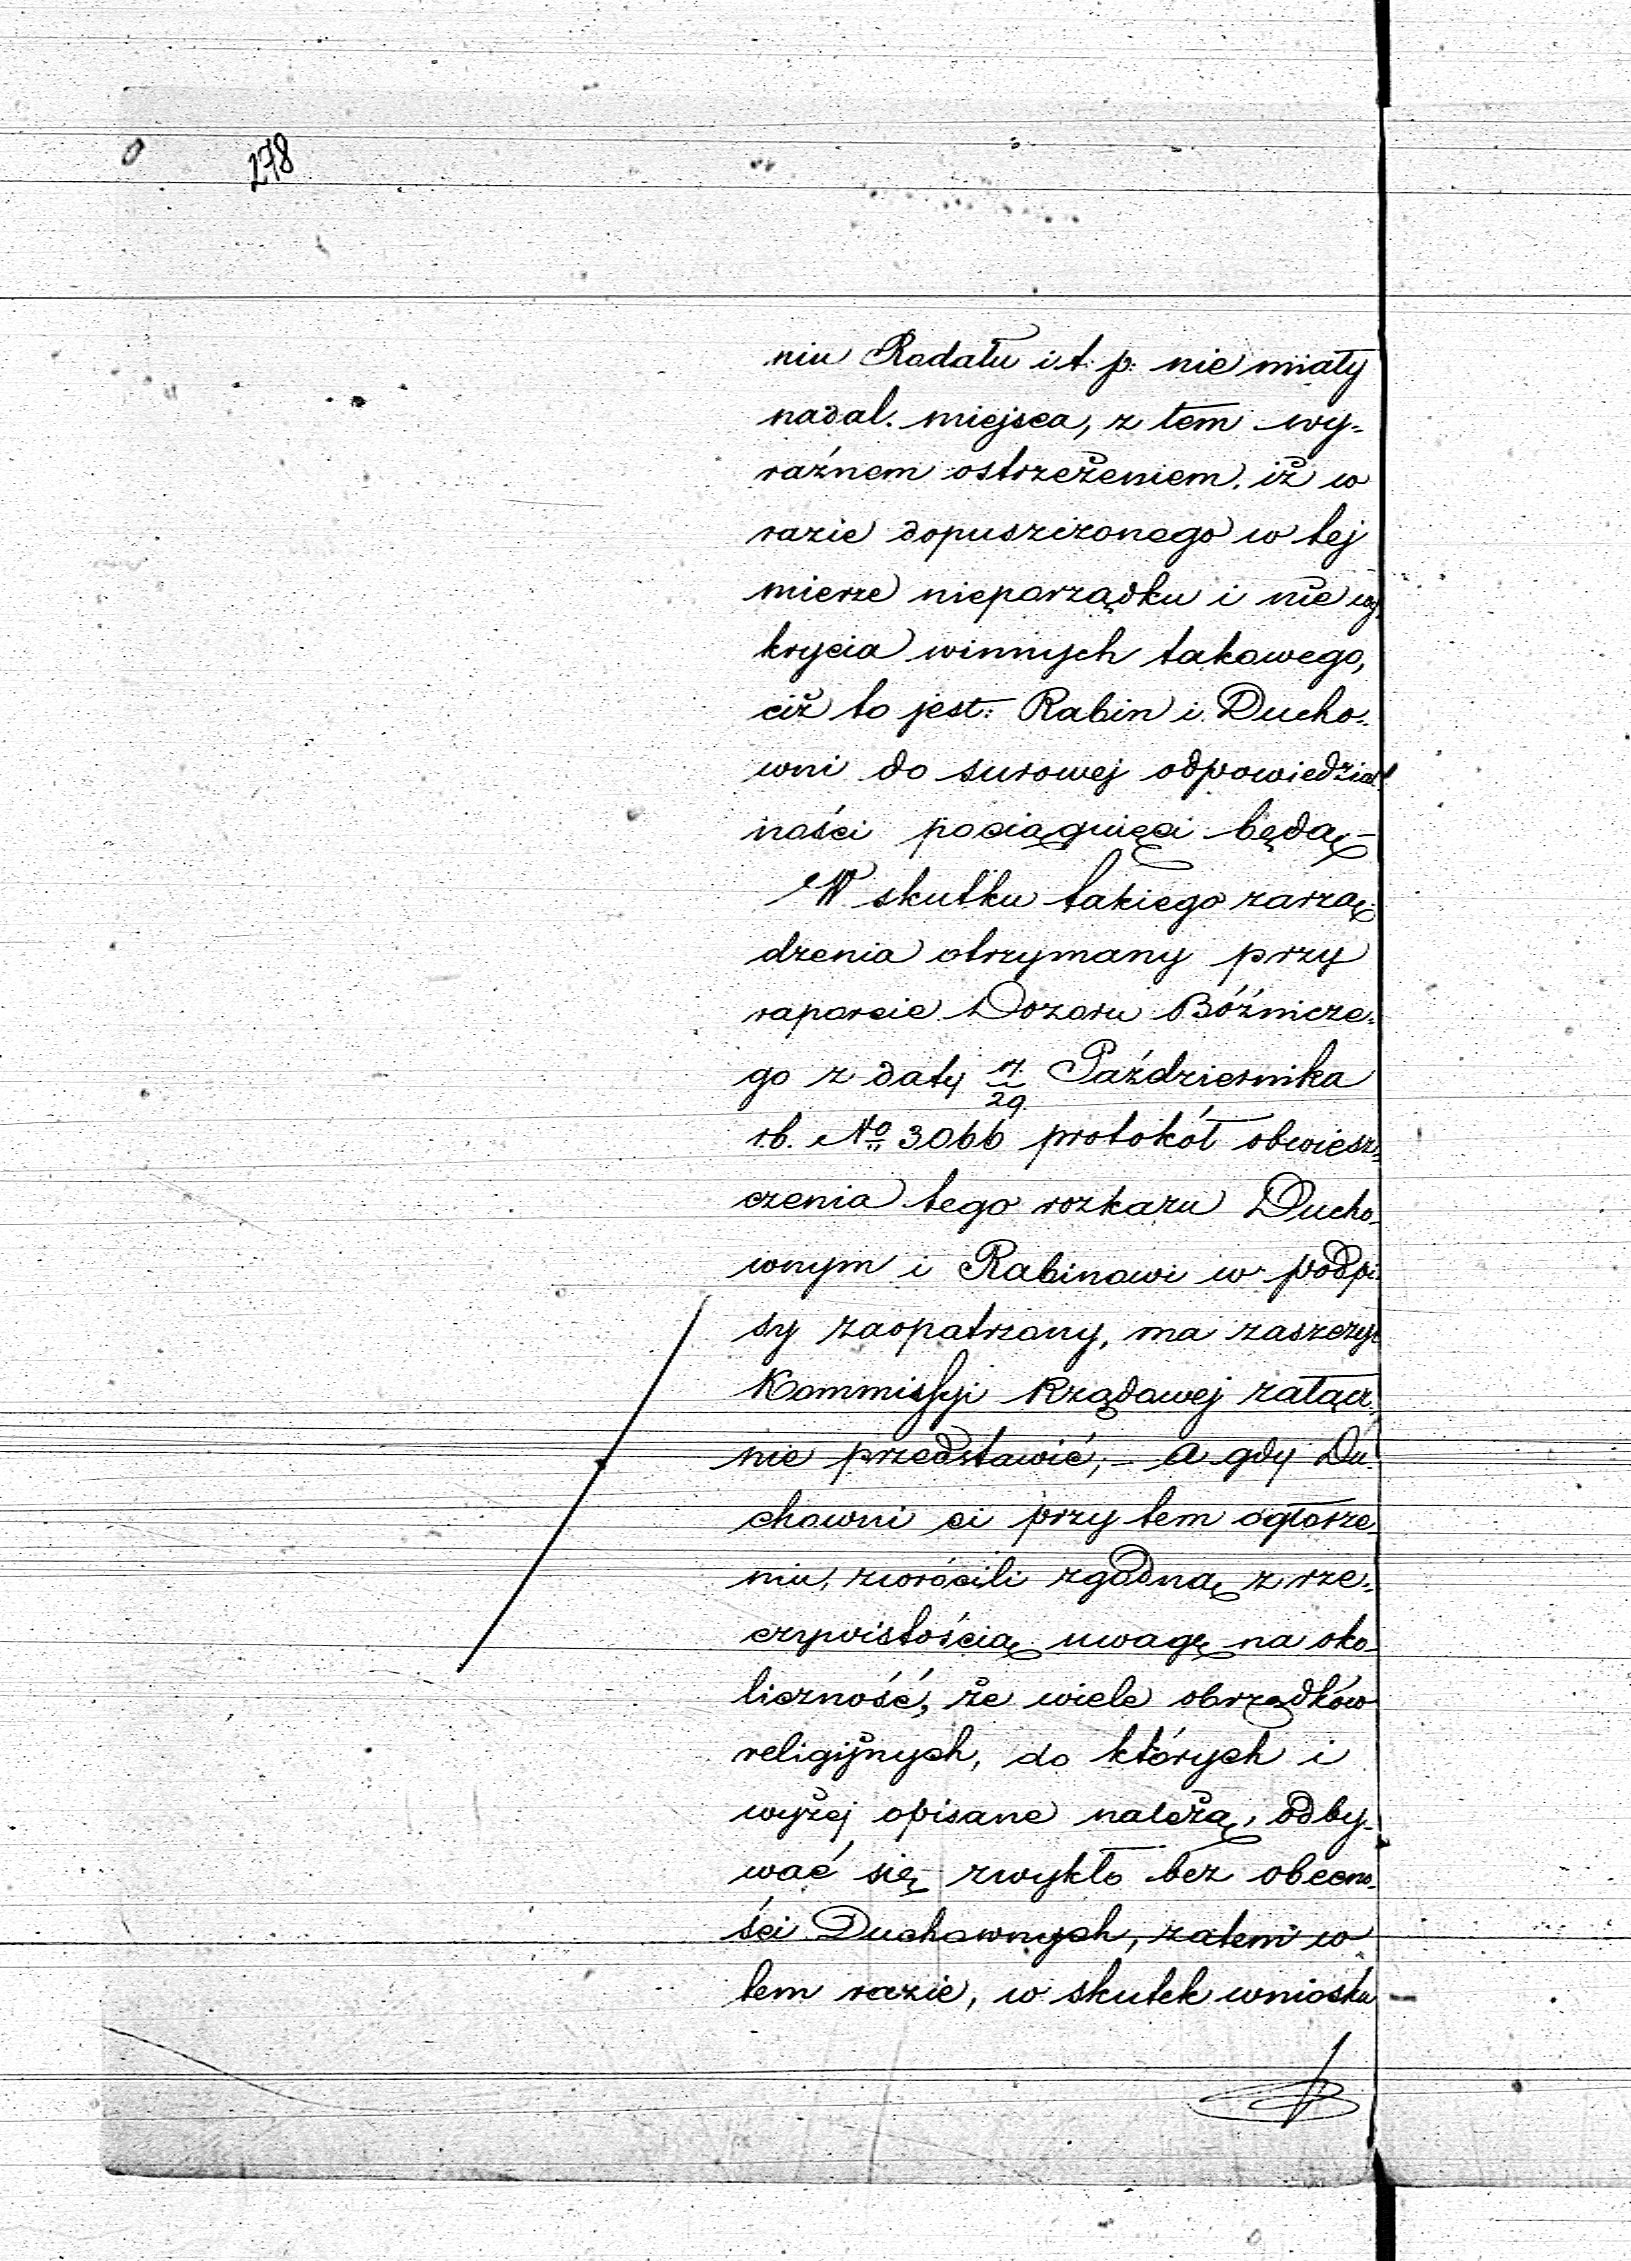 278
niu Rodału i t. p. nie miały
nadal miejsca, z tem wy-
raźnem ostrzeżeniem, iż w
razie dopuszczonego w tej
mierze nieporządku i nie wy
krycia winnych takowego,
ciż to jest: Rabin i Ducho-
wni do surowej odpowiedzial
ności pociągnięci będą –
W skutku takiego zarzą-
dzenia otrzymany przy
raporcie Dozoru Bóżnicze-
go z daty 17/29 Października
r.b. No 3066 protokół obwiesz-
czenia tego rozkazu Ducho-
wnym i Rabinowi w podpi-
sy zaopatrzony, ma zaszczyt
Kommissyi Rządowej załącz-
nie przedstawić; – a gdy Du-
chowni ci przy tem ogłosze-
niu, zwrócili zgodną z rze-
czywistością uwagę na oko-
liczność, że wiele obrządków
religijnych, do których i
wyżej opisane należą, odby-
wać się zwykło bez obecno-
ści Duchownych, zatem w
tem razie, w skutek wniosku